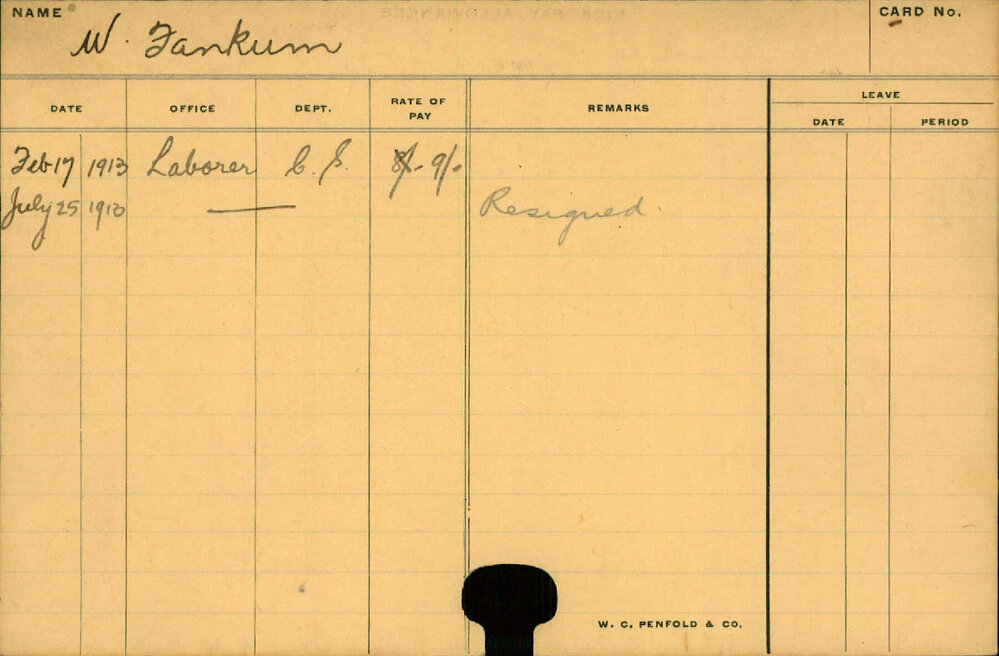 NAME W. Fankum CARD No.
DATE OFFICE DEPT. RATE OF PAY REMARKS LEAVE
DATE PERIOD
Feb 17 1913 Laborer 8/- 9/-
July 25 1913 — Resigned.
W. C. PENFOLD & CO.